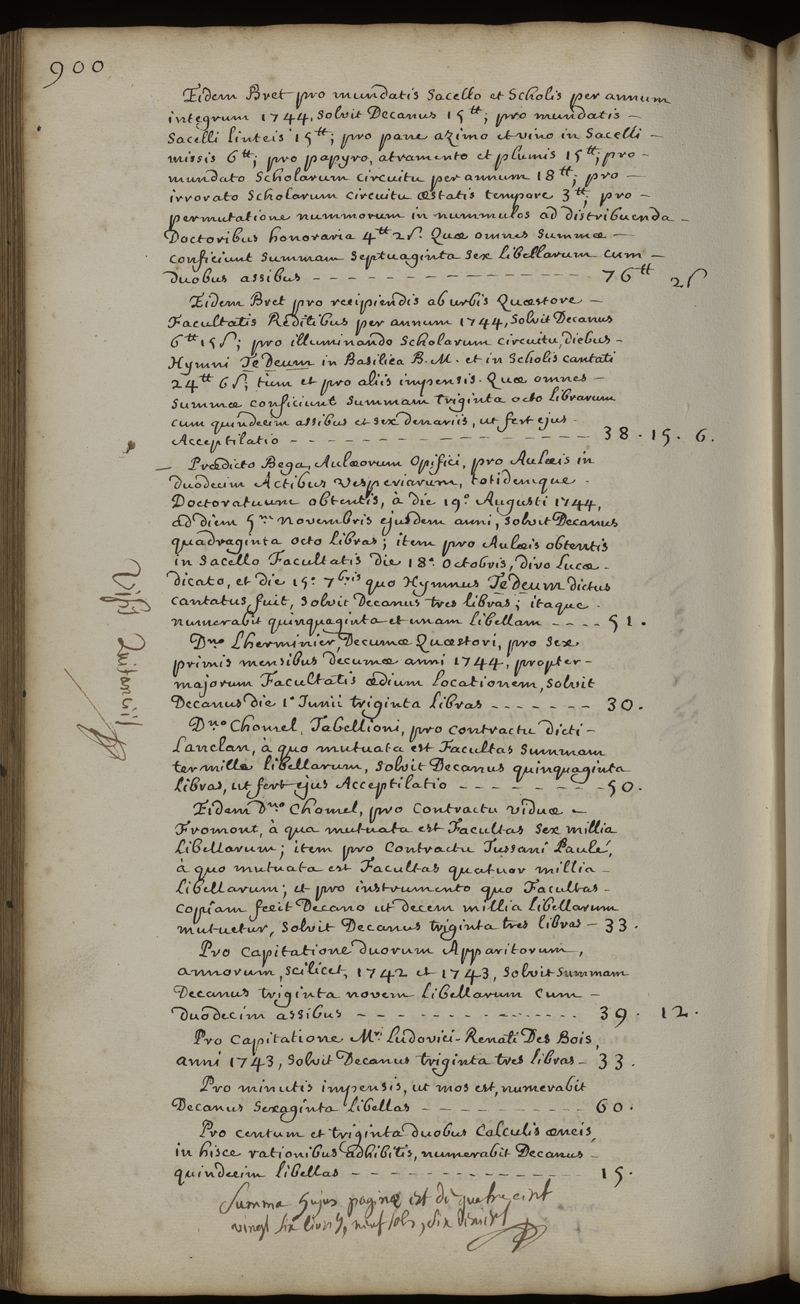 900
Eidem Bret pro mundatis Sacello et Scholis per annum
integrum 1744, Solvit Decanus 15ᵗᵗ; pro mundatis –
Sacelli linteis 15ᵗᵗ; pro pane azimo et vino in Sacelli –
missis 6ᵗᵗ; pro papyro, atramento et plumis 15ᵗᵗ; pro –
mundato Scholarum circuitu per annum 18ᵗᵗ; pro –
irrorato Scholarum circuitu æstatis tempore 3ᵗᵗ; pro –
permutatione nummorum in nummulos ad distribuenda –
Doctoribus honoraria 4ᵗᵗ 2ſ. Quæ omnes Summæ –
conficiunt Summam Septuaginta Sex libellarum cum –
duobus assibus – – – – – – – – – – – – – – – 76ᵗᵗ 2ſ
Eidem Bret pro recipiendis ab urbis Quæstore –
Facultatis Reditibus per annum 1744, Solvit Decanus
6ᵗᵗ 15ſ; pro illuminando Scholarum circuitu, diebus –
Hymni Te Deum in Basilica B. M. et in Scholis cantati
24ᵗᵗ 6ſ; tùm et pro aliis impensis. Quæ omnes –
Summæ conficiunt Summam triginta octo librarum
cum quindecim assibus et Sex denariis, ut fert ejus –
Acceptilatio – – – – – – – – – – – – – – – 38 . 15 . 6.
– Prædicto Bega, Aulæorum Opifici, pro Aulæis in
duodecim Actibus Vesperiarum, totidemque –
Doctoratuum obtentis, à die 19ᵃ Augusti 1744,
ad diem 5ᵃᵐ Novembris ejusdem anni, Solvit Decanus
quadraginta octo libras; item pro Aulæis obtentis
in Sacello Facultatis die 18ᵃ Octobris, divo Lucæ –
dicato, et die 15ᵃ 7ᵇʳⁱˢ quo Hymnus Te Deum dictus
cantatus fuit, Solvit Decanus tres libras; itaque –
numerabit quinquaginta et unam libellam – – – – 51 .
Dⁿᵒ Lherminier, Decumæ Quæstori, pro Sex
primis mensibus decumæ anni 1744, propter –
majorum Facultatis ædium locationem, Solvit
Decanus die 1ᵃ Junii triginta libras – – – – – – – 30 .
Dⁿᵒ Chomel, Tabellioni, pro contractu dicti –
Lanclan, à quo mutuata est Facultas Summam
ter mille libellarum, Solvit Decanus quinquaginta
libras, ut fert ejus Acceptilatio – – – – – – – – 50 .
Eidem Dⁿᵒ Chomel, pro Contractu viduæ –
Fromont, à qua mutuata est Facultas Sex millia
libellarum; item pro Contractu Tussani Paulé,
à quo mutuata est Facultas quatuor millia –
libellarum; et pro instrumento quo Facultas –
copiam fecit Decano ut decem millia libellarum
mutuetur, Solvit Decanus triginta tres libras – 33 .
Pro Capitatione duorum Apparitorum,
annorum, scilicet, 1742 et 1743, Solvit Summam
Decanus triginta novem libellarum cum –
duodecim assibus – – – – – – – – – – – – – 39 . 12 .
Pro Capitatione Mʳⁱ Ludovici-Renati Des Bois,
anni 1743, Solvit Decanus triginta tres libras – 33 .
Pro minutis impensis, ut mos est, numerabit
Decanus Sexaginta libellas – – – – – – – – – 60 .
Pro centum et triginta duobus Calculis æneis,
in hisce rationibus adhibitis, numerabit Decanus –
quindecim libellas – – – – – – – – – – – – – 15 .
Summa hujus paginæ est de quatre cent
vingt six livres, neuf sols, six deniers